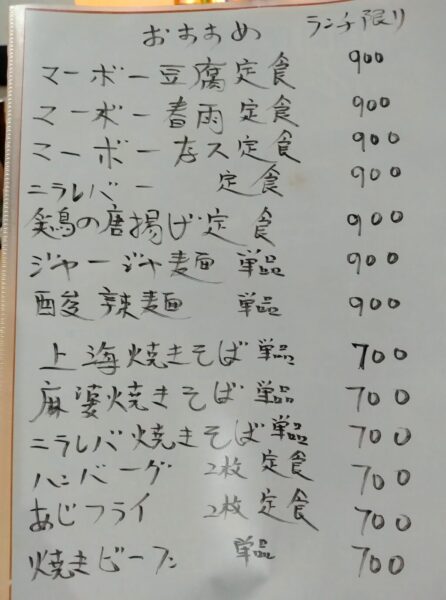 おすすめ ランチ限り
マーボー豆腐定食 900
マーボー春雨定食 900
マーボーナス定食 900
ニラレバー 定食 900
鶏の唐揚げ定食 900
ジャージャ麺 単品 900
酸辣麺 単品 900
上海焼きそば単品 700
麻婆焼きそば単品 700
ニラレバ焼きそば単品 700
ハンバーグ 2枚定食 700
あじフライ 2枚定食 700
焼きビーフン 単品 700